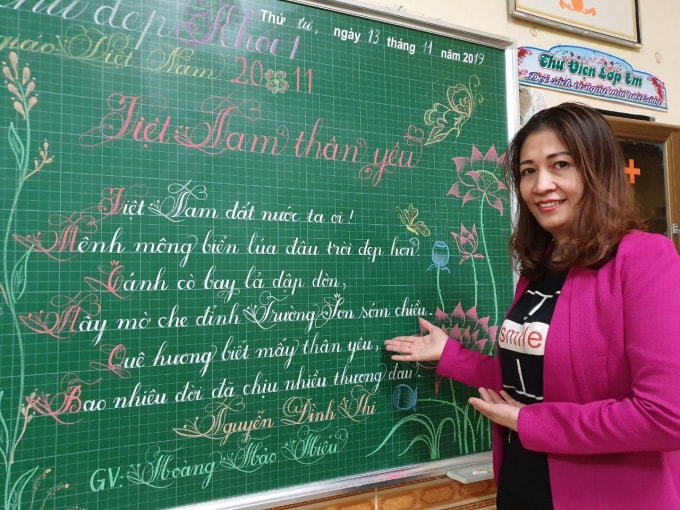 Thứ tư, ngày 13 tháng 11 năm 2019
chữ đẹp Khối 1
giáo Việt Nam 20 11
Việt Nam thân yêu
Việt Nam đất nước ta ơi!
Mênh mông biển lúa đâu trời đẹp hơn
Cánh cò bay lả dập dờn,
Mây mờ che đỉnh Trường Sơn sớm chiều.
Quê hương biết mấy thân yêu,
Bao nhiêu đời đã chịu nhiều thương đau!
Nguyễn Đình Thi
GV: Hoàng Hảo Hiếu
Thư Viện Lớp Em
smile